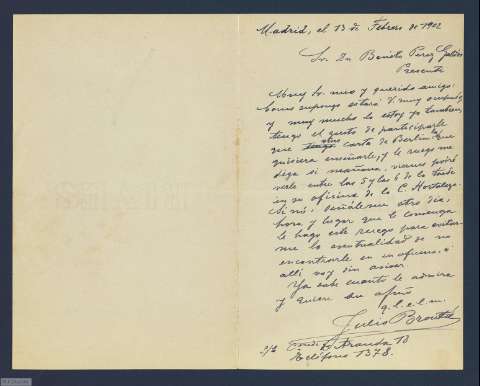 Madrid, el 13 de Febrero de 1902
Sr. Dn Benito Perez Galdós
Presente
Muy Sr. mio y querido amigo:
Como supongo estará V. muy ocupado,
y muy mucho lo estoy yo tambien,
tengo el gusto de participarle
que carta de Berlin que
quisiera enseñarle, y le ruego me
diga si mañana, viernes podré
verle entre las 5 y las 6 de la tarde
en su oficina de la C. Hortaleza.
Si nó, señáleme otro dia,
hora, y lugar que le convenga
le hago este ruego para evitar-
me la eventualidad de no
encontrarle en su oficina, si
allí voy sin avisar
Ya sabe cuanto le admira
y quiere su afmo
q.l.e.l.m.
Julio Broutá
s/c Aranda 18
Teléfono 1378.